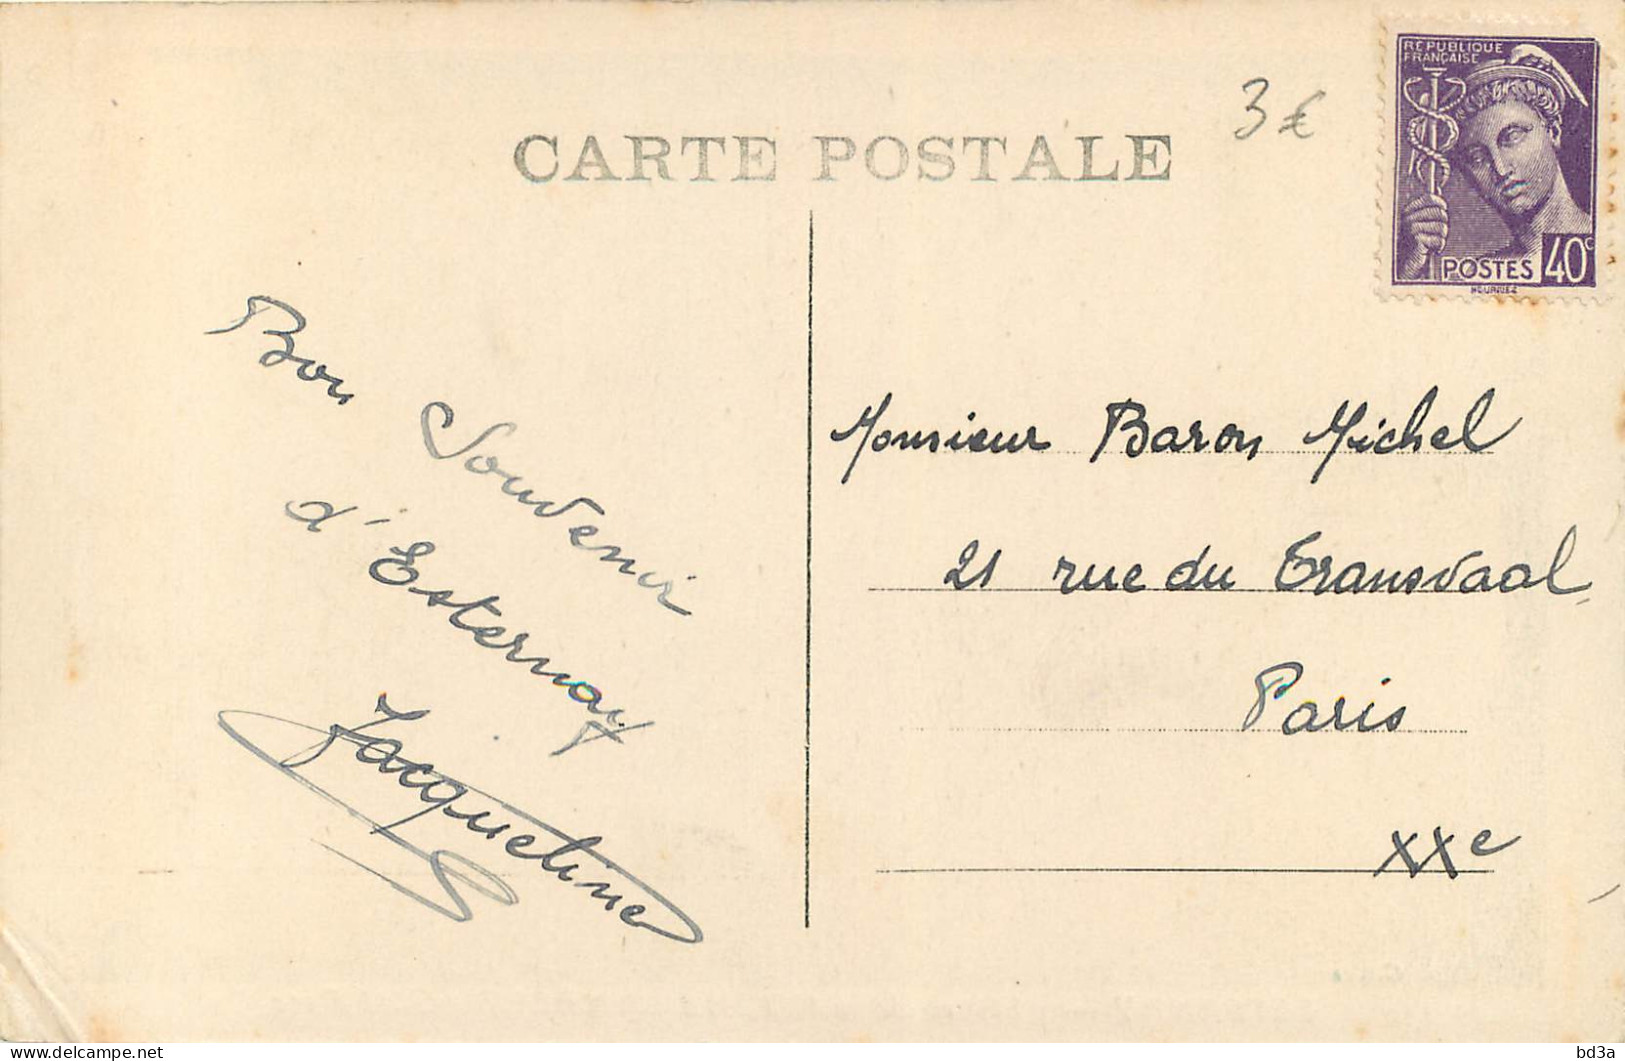 CARTE POSTALE
3 €
RÉPUBLIQUE
FRANÇAISE
POSTES 40c
Bon
Souvenir
d'Esternay
Jacqueline
Monsieur Baron Michel
21 rue du Transvaal
Paris
XXe
delcampe.net
bd3a